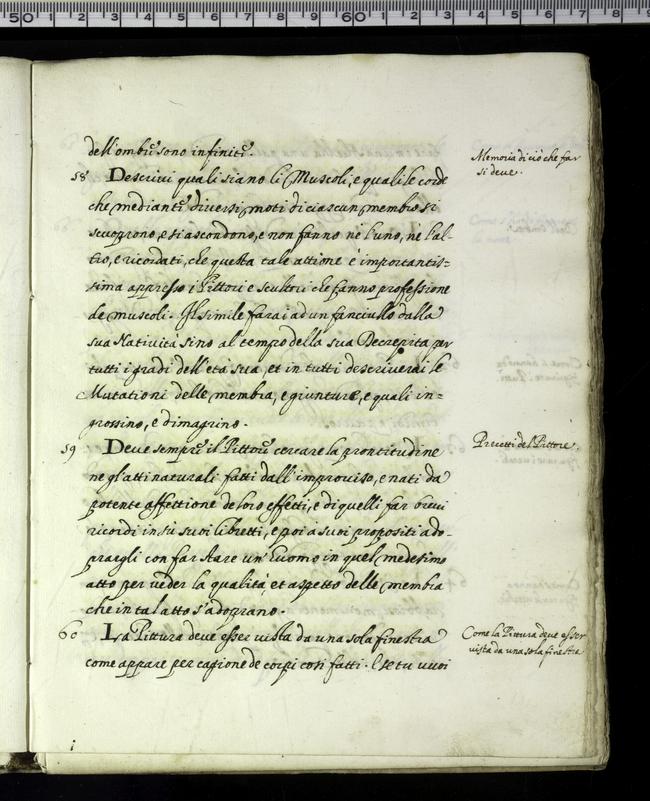 dell'ombre sono infinite.
Memoria di ciò che far
si deve.
58 Descrivi quali siano li Muscoli, e quali le corde
che mediante diversi moti di ciascun membro si
scuoprono, e si ascondono, e non fanno nè l'uno, ne l'al-
tro, e ricordati, che questa tale attione è importantis-
sima appresso i Pittori e scultori che fanno professione
de muscoli. Il simile farai ad un fanciullo dalla
sua Natività sino al tempo della sua Decrepita per
tutti i gradi dell'età sua, et in tutti descriverai le
Mutationi delle membra, e giunture, e quali in-
grossino, e dimagrino.
59 Deve sempre il Pittore cercare la prontitudine
Precetti del Pittore.
ne gl'atti naturali fatti dall'improviso, e nati da
potente affettione de loro effetti, e di quelli far brevi
ricordi in sù suoi libretti, e poi à suoi propositi ado-
pragli con far stare un'Euomo in quel medesimo
atto per veder la qualità, et aspetto delle membra
che in tal atto s'adoprano.
60 La Pittura deve esser vista da una sola finestra
Come la Pittura deve esser
vista da una sola finestra
come appare per cagione de corpi così fatti. E se tu vuoi